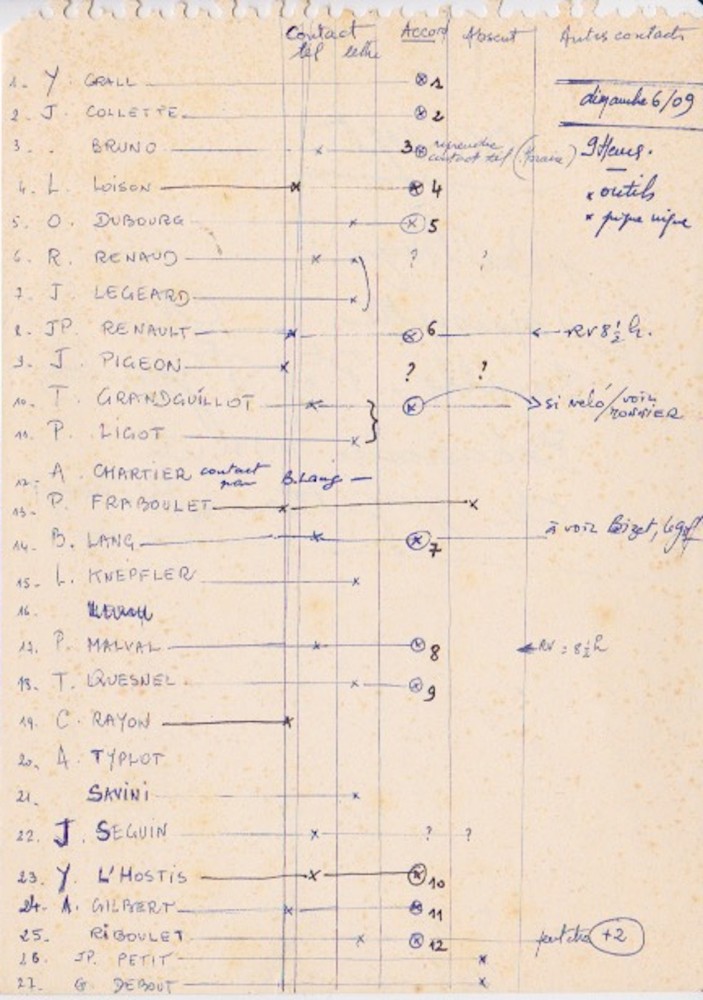 Contact Accord Absent Autres contacts
tel lettre
1. Y. GRALL ⊗ 1
dimanche 6/09
2. J. COLLETTE ⊗ 2
3. . BRUNO x 3 ⊗ reprendre contact tel (horaire) 9 Heures.
4. L. LOISON x ⊗ 4 x outils
5. O. DUBOURG x ⊗ 5 x pique nique
6. R. RENAUD x x ? ?
7. J. LEGEARD x
8. JP. RENAULT x ⊗ 6 ← RV 8 ½ h.
9. J. PIGEON x ? ?
10. T. GRANDGUILLOT x ⊗ → si vélo/voir MONNIER
11. P. LIGOT x
12. A. CHARTIER contact par B. Lang —
13. P. FRABOULET x x
14. B. LANG x ⊗ 7 à voir Bizet,
15. L. KNEPFLER x
16.
17. P. MALVAL x ⊗ 8 ← RV = 8 ½ h
18. T. QUESNEL x ⊗ 9
19. C. RAYON x
20. A. TYPLOT
21. SAVINI x
22. J. SEGUIN x ? ?
23. Y. L'HOSTIS x ⊗ 10
24. A. GILBERT x ⊗ 11
25. RIBOULET x ⊗ 12 +2
26. JP. PETIT x
27. G. DEBOUT x